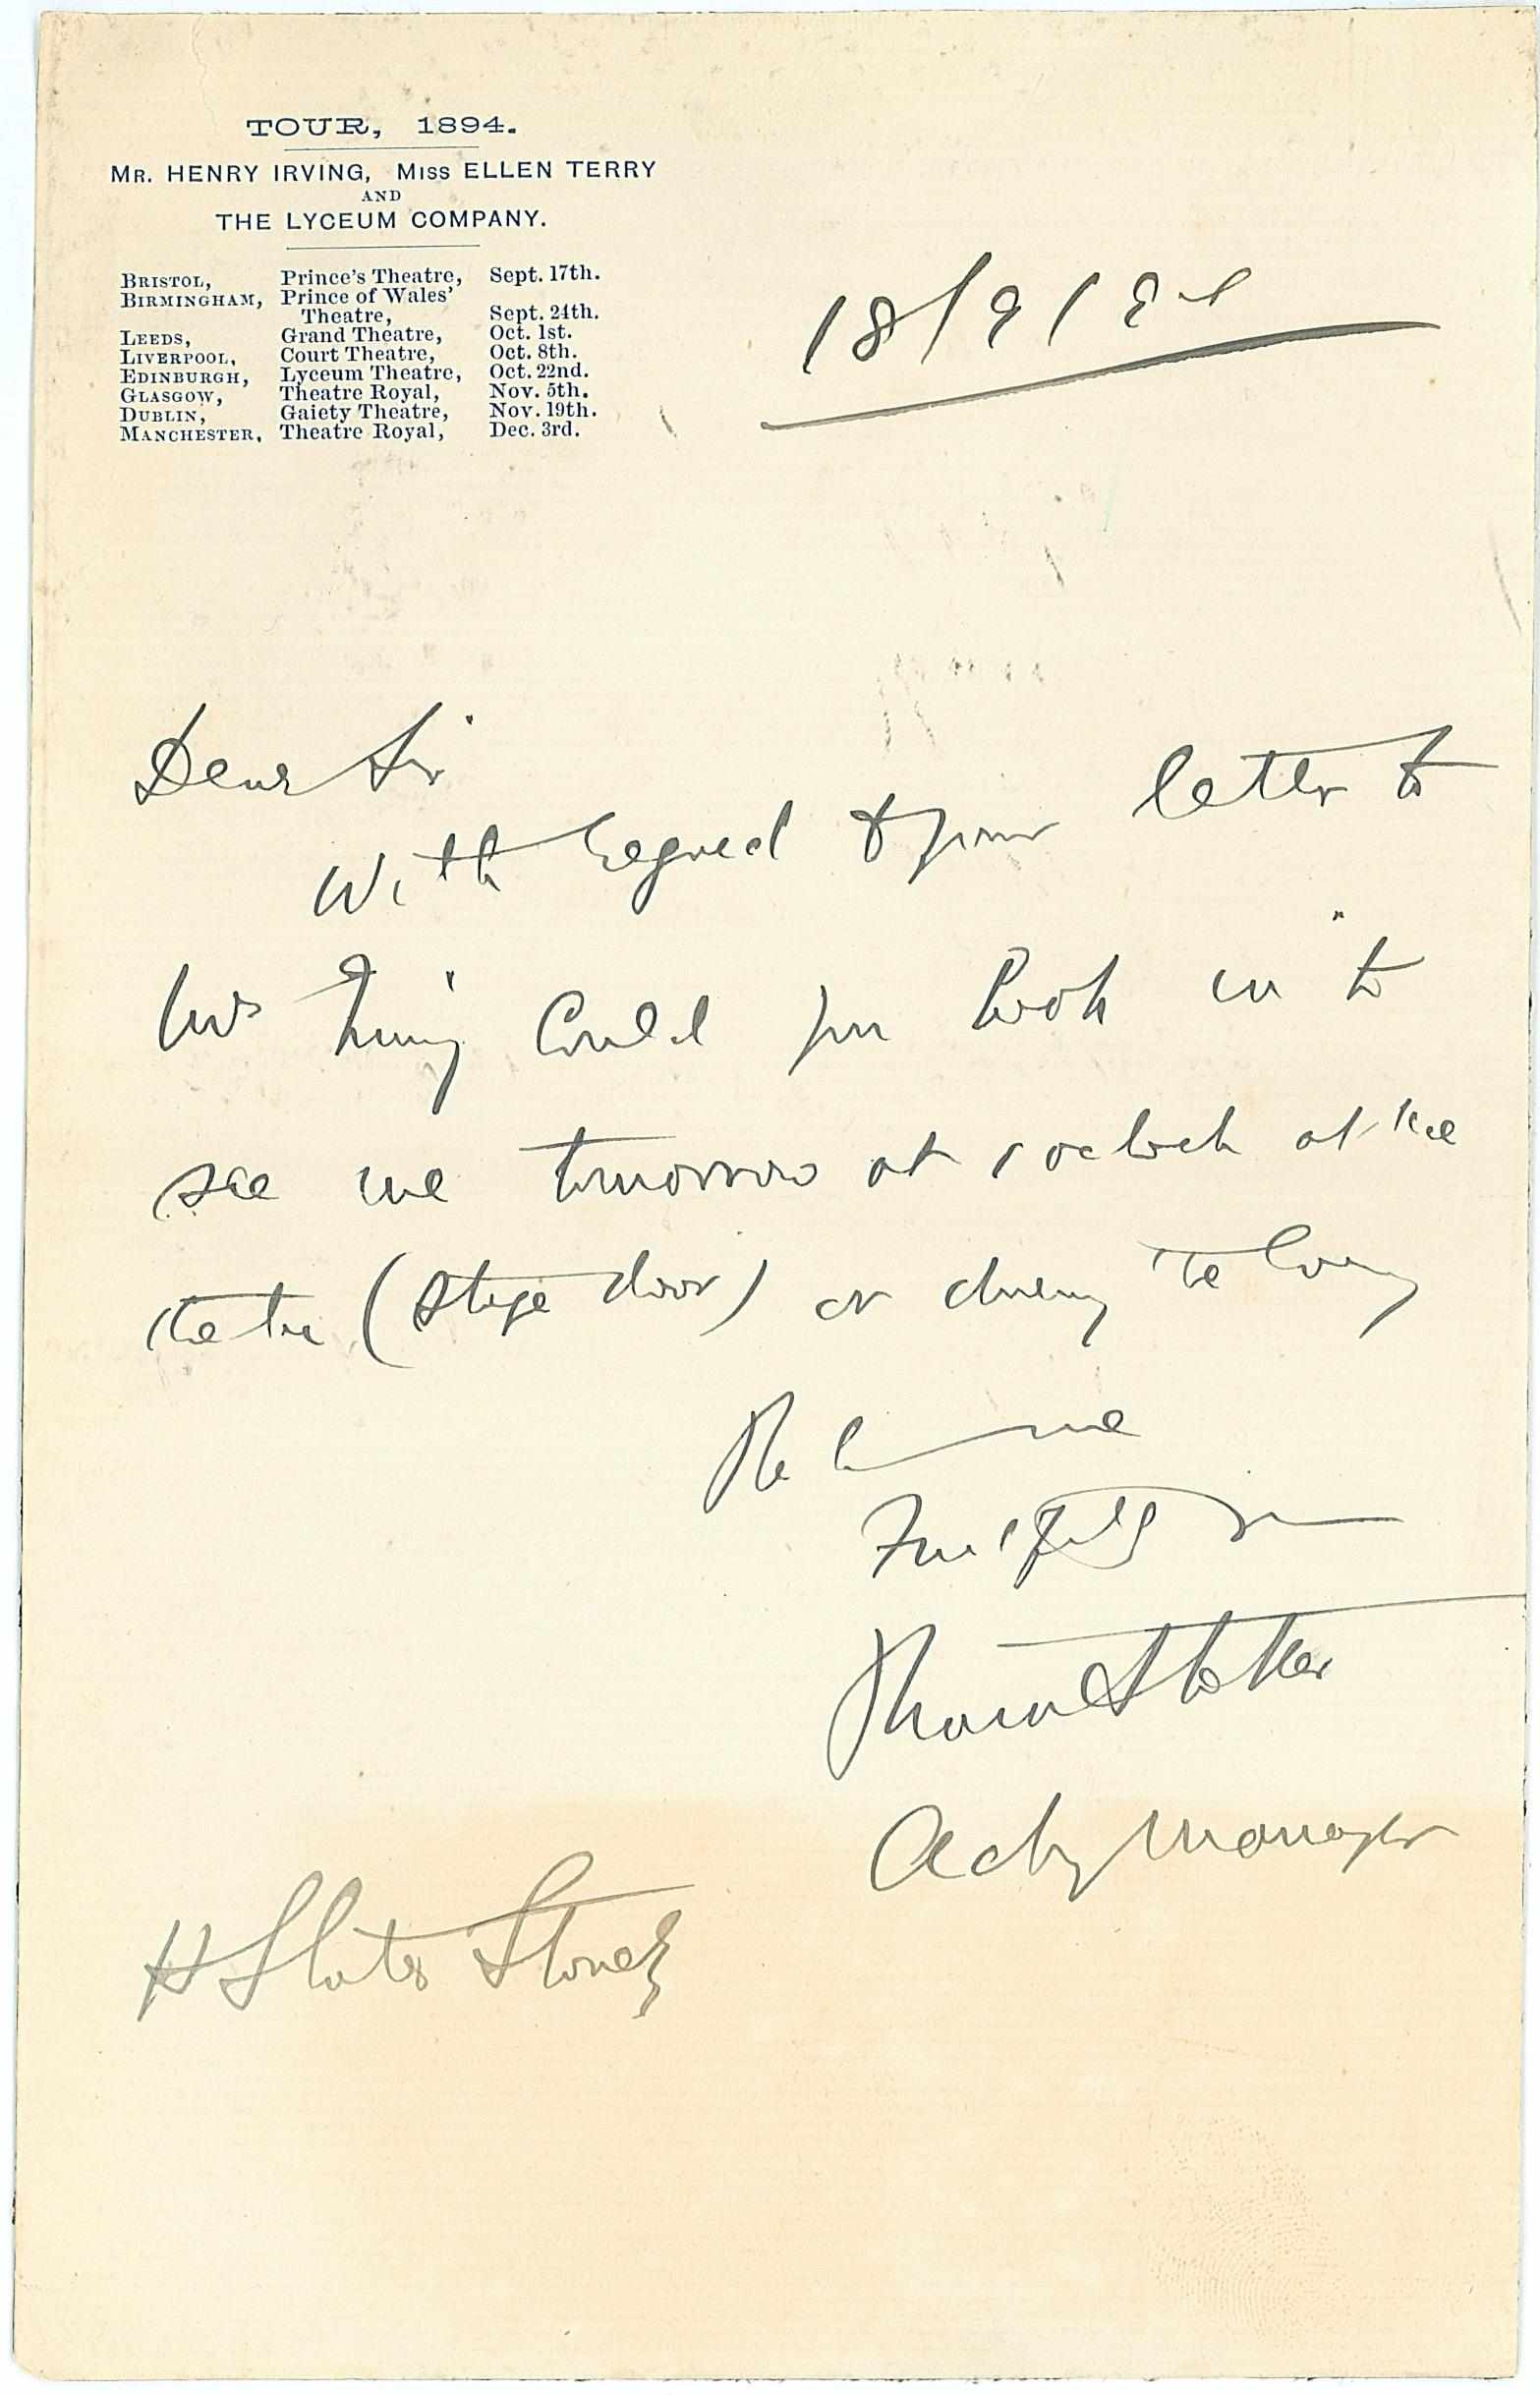 TOUR, 1894.
MR. HENRY IRVING, MISS ELLEN TERRY
AND
THE LYCEUM COMPANY.
BRISTOL, Prince's Theatre, Sept. 17th.
BIRMINGHAM, Prince of Wales'
Theatre, Sept. 24th.
LEEDS, Grand Theatre, Oct. 1st.
LIVERPOOL, Court Theatre, Oct. 8th.
EDINBURGH, Lyceum Theatre, Oct. 22nd.
GLASGOW, Theatre Royal, Nov. 5th.
DUBLIN, Gaiety Theatre, Nov. 19th.
MANCHESTER, Theatre Royal, Dec. 3rd.
18/9/94
Dear Sir
With regard to your letter to
Mr Irving could you look in to
see me tomorrow at 1 oclock at the
theatre (stage door) or during the evening
Believe me
Faithfully yours
Bram Stoker
Acting Manager
H Slater Stone Esq